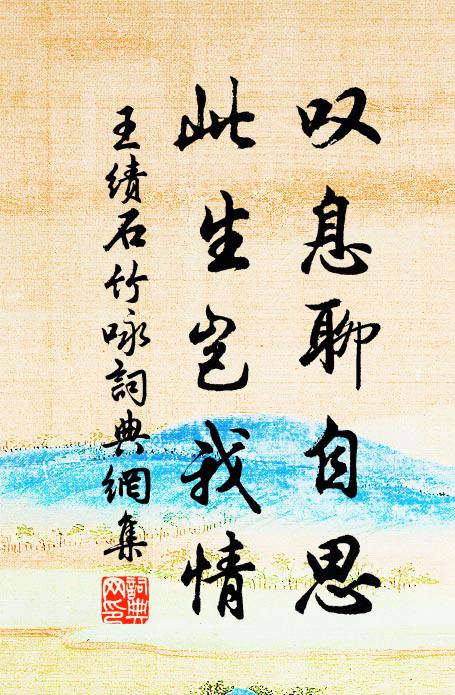 叹息聊自思
此生岂我情
王绩石竹咏詞典網集
詞典网印